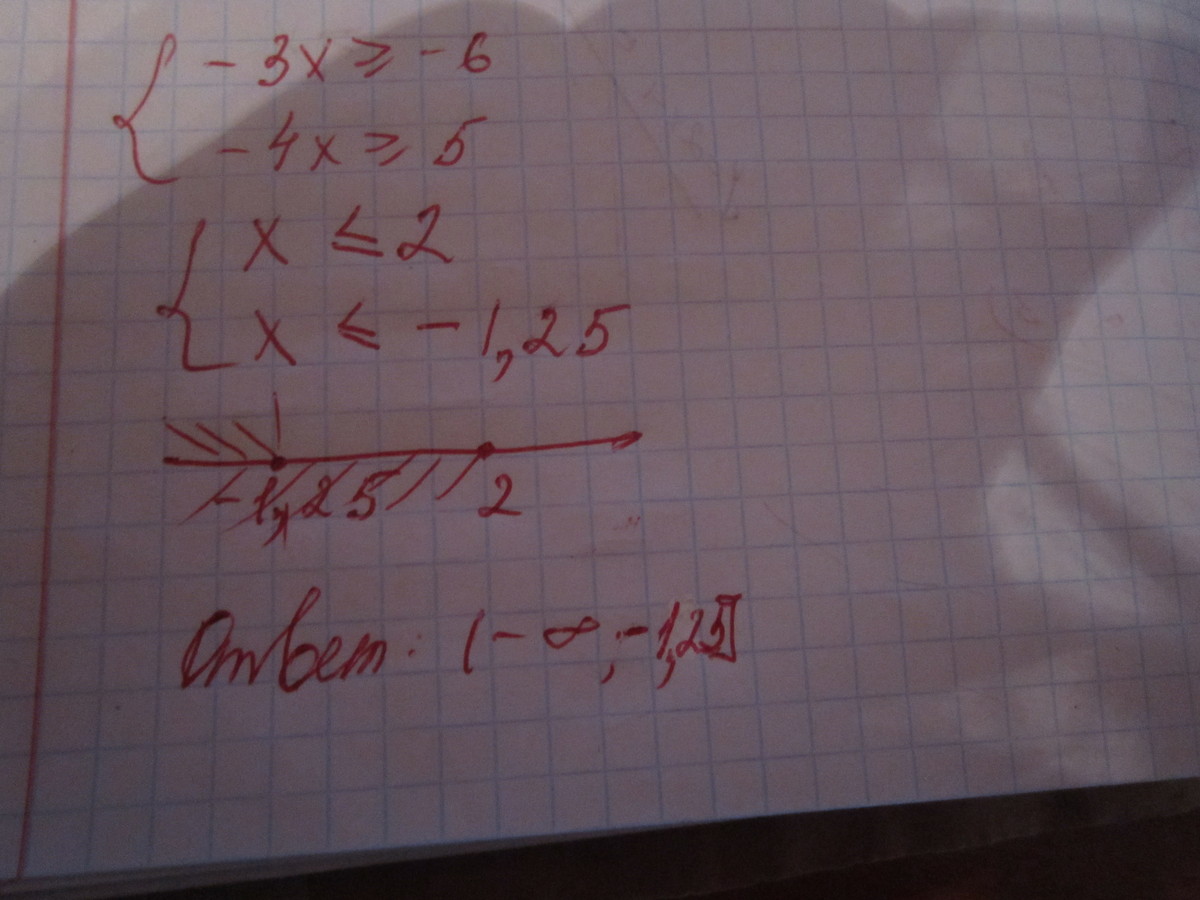 { -3x ≥ -6
-4x ≥ 5
{ x ≤ 2
x ≤ -1,25
-1,25 2
Ответ: (-∞; -1,25]